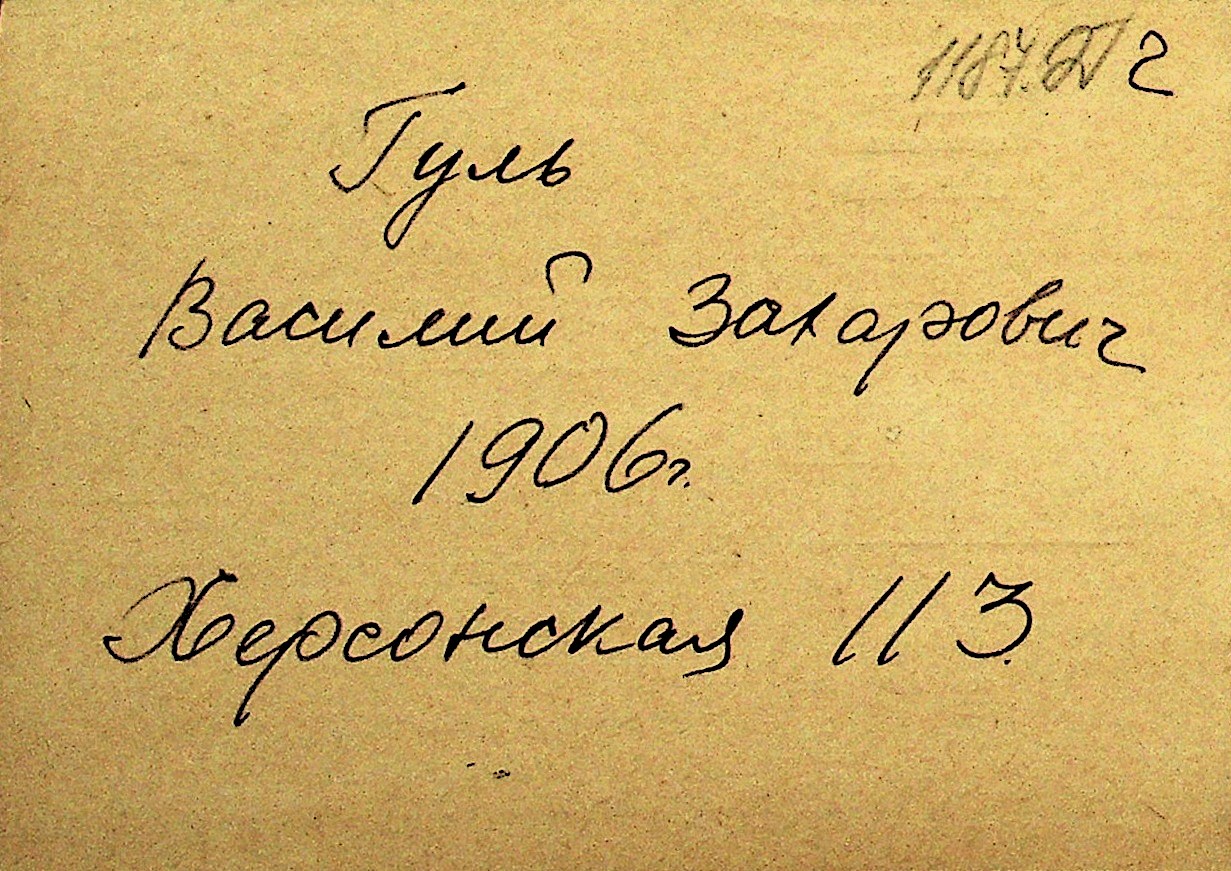 г
Гуль
Василий Захарович
1906г.
Херсонская 113